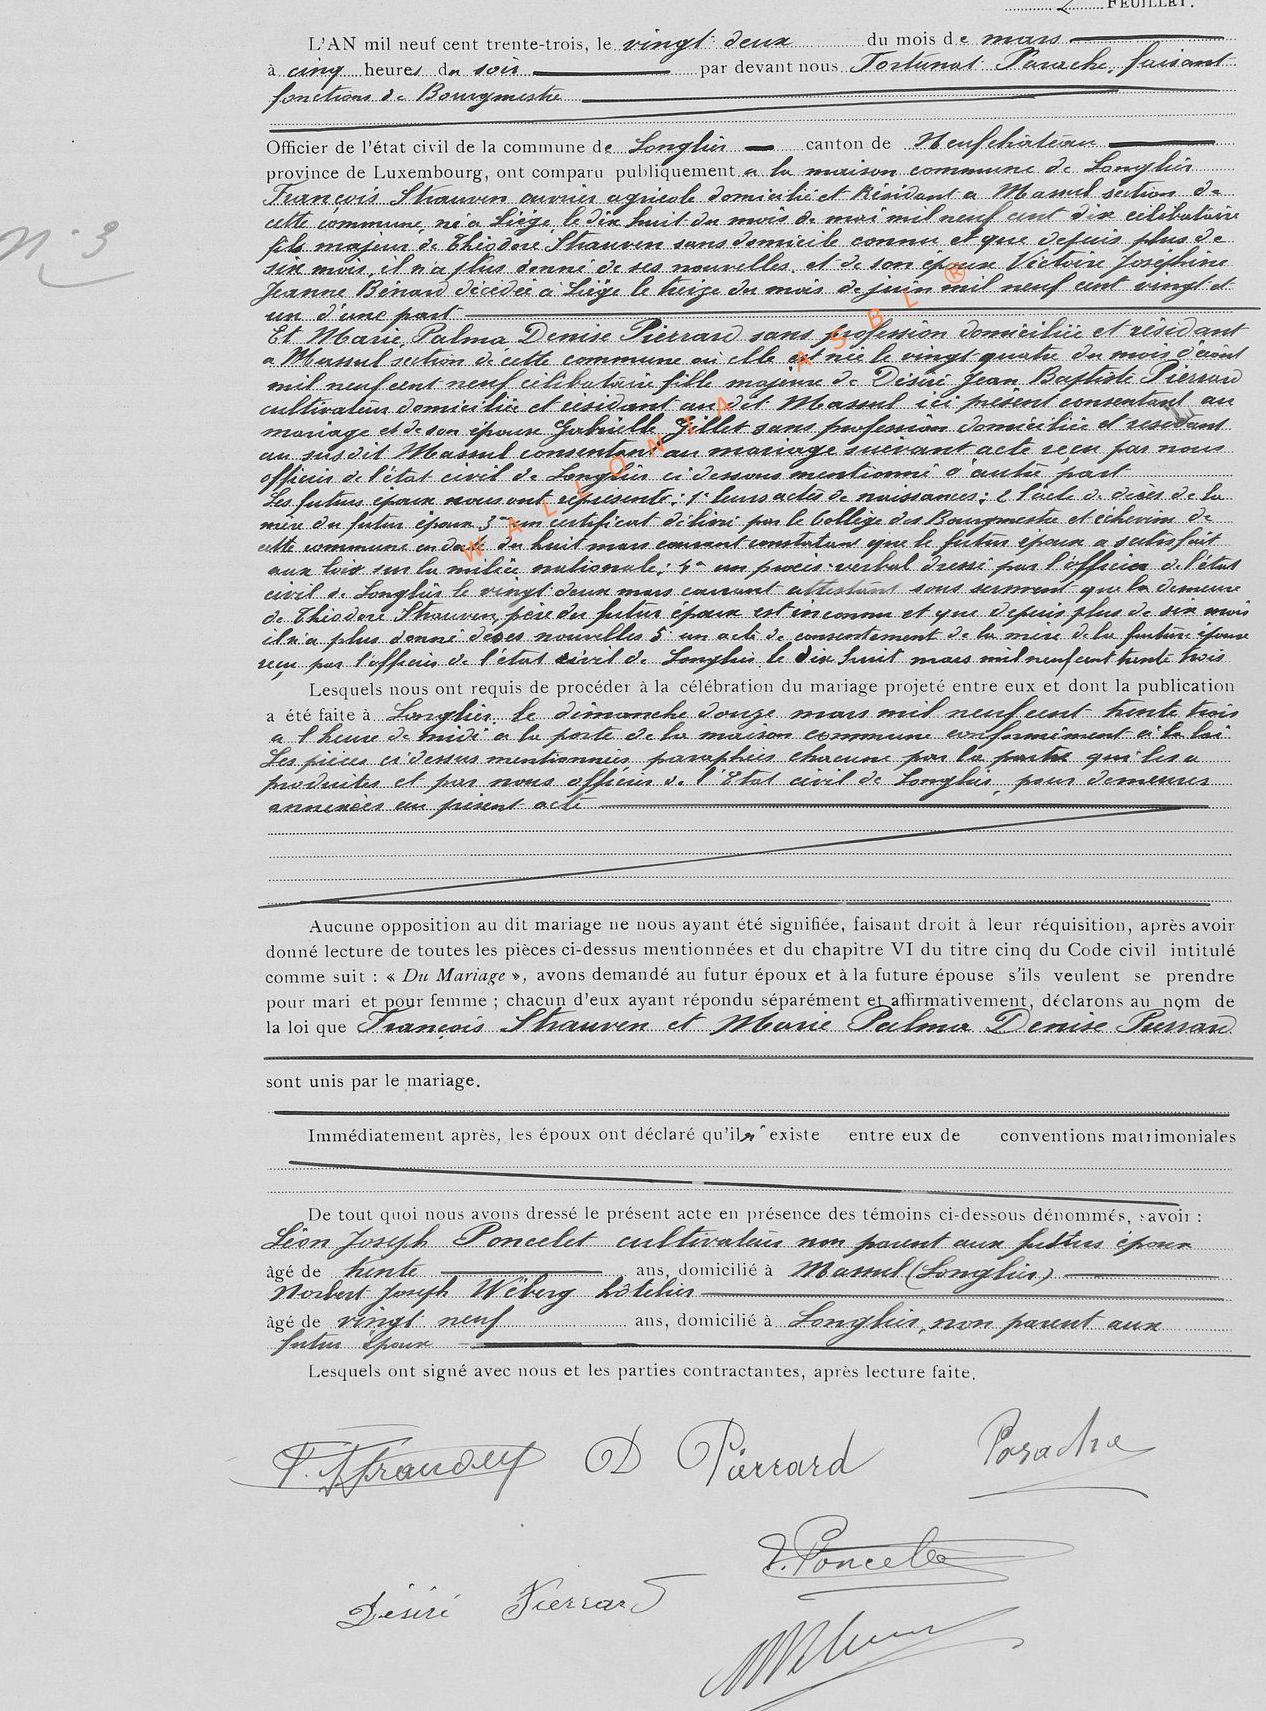 2 FEUILLET.
L'AN mil neuf cent trente-trois, le vingt deux du mois de mars
à cinq heures du soir par devant nous Fortunat Parache, faisant
fonctions de Bourgmestre
Officier de l'état civil de la commune de Longlier canton de Neufchâteau
province de Luxembourg, ont comparu publiquement a la maison commune de Longlier
N° 3
François Strauven ouvrier agricole domicilié et résidant a Massul section de
cette commune, né a Liége, le dix huit du mois de mai mil neuf cent dix célibataire
fils majeur de Théodore Strauven sans domicile connu et que depuis plus de
six mois, il n'a plus donné de ses nouvelles, et de son epouse Victoire Joséphine
Jeanne Bénard décédée à Liége le treize du mois de juin mil neuf cent vingt et
un d'une part
Et Marie, Palma Denise Pierrard sans profession domiciliée et résidant
a Massul section de cette commune où elle est née le vingt quatre du mois d'août
mil neuf cent neuf célibataire fille majeure de Désiré Jean Baptiste Pierrard
cultivateur domicilié et résidant au dit Massul ici présent consentant au
mariage et de son épouse Gabrielle Gillet sans profession domiciliée et résidant
au susdit Massul consentant au mariage suivant acte reçu par nous
officier de l'état civil de Longlier ci dessous mentionné d'autre part
Les futurs époux nous ont représenté : 1° leurs actes de naissances; 2° l'acte de décès de la
mère du futur époux 3° un certificat délivré par le Collège des Bourgmestre et échevins de
cette commune en date du huit mars courant constatant que le futur époux a satisfait
aux lois sur la milice nationale; 4° un procès-verbal dressé par l'officier de l'état
civil de Longlier le vingt deux mars courant attestant sous serment que la demeure
de Théodore Strauven, père du futur époux est inconnu et que depuis plus de six mois
il n'a plus donné de ses nouvelles 5° un acte de consentement de la mère de la future épouse
reçu par l'officier de l'état civil de Longlier le dix huit mars mil neuf cent trente trois
Lesquels nous ont requis de procéder à la célébration du mariage projeté entre eux et dont la publication
a été faite à Longlier, le dimanche douze mars mil neuf cent trente trois
a l'heure de midi a la porte de la maison commune conformément à la loi
Les pièces ci dessus mentionnées paraphées chacune par la partie qui les a
produites et par nous officier de l'Etat civil de Longlier, pour demeurer
annexées au présent acte
Aucune opposition au dit mariage ne nous ayant été signifiée, faisant droit à leur réquisition, après avoir
donné lecture de toutes les pièces ci-dessus mentionnées et du chapitre VI du titre cinq du Code civil intitulé
comme suit : « Du Mariage », avons demandé au futur époux et à la future épouse s'ils veulent se prendre
pour mari et pour femme ; chacun d'eux ayant répondu séparément et affirmativement, déclarons au nom de
la loi que François Strauven et Marie Palma Denise Pierrard
sont unis par le mariage.
Immédiatement après, les époux ont déclaré qu'il n'existe entre eux de conventions matrimoniales
De tout quoi nous avons dressé le présent acte en présence des témoins ci-dessous dénommés, savoir :
Léon Joseph Poncelet cultivateur non parent aux futurs époux
âgé de trente ans, domicilié à Massul (Longlier)
Norbert Joseph Wéberg hôtelier
âgé de vingt neuf ans, domicilié à Longlier, non parent aux
futurs époux
Lesquels ont signé avec nous et les parties contractantes, après lecture faite.
F. Strauven D Pierrard Parache
L. Poncelet
Désiré Pierrard
WALLONIA ASBL ®